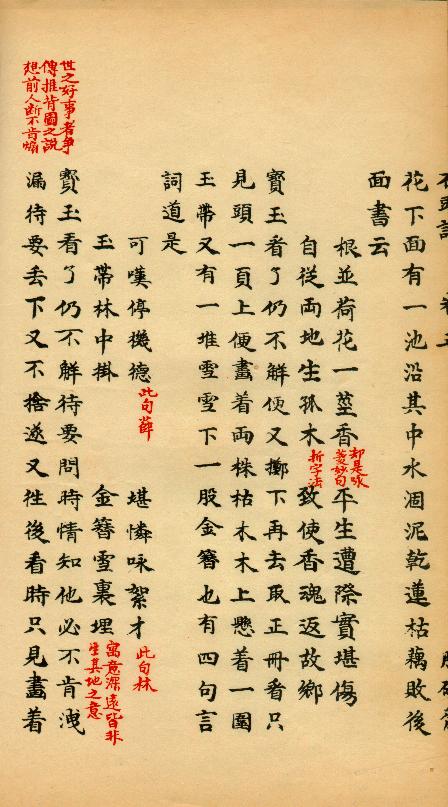 花下面有一池沿其中水涸泥乾蓮枯藕敗後
面書云
根並荷花一莖香 却是咏菱妙句 平生遭際實堪傷
自從両地生孤木 折字法 致使香魂返故鄉
寶玉看了仍不觧便又擲下再去取正冊看只
見頭一頁上便畫着両株枯木木上懸着一圍
玉帶又有一堆雪雪下一股金簪也有四句言
詞道是
可嘆停機德 此句薛 堪憐咏絮才 此句林
玉帶林中掛 金簪雪裏埋 寓意深遠皆非生其地之意
世之好事者争傳推背圖之說想前人斷不肯煽
寳玉看了仍不觧待要問時情知他必不肯洩
漏待要丢下又不捨遂又徃後看時只見畫着